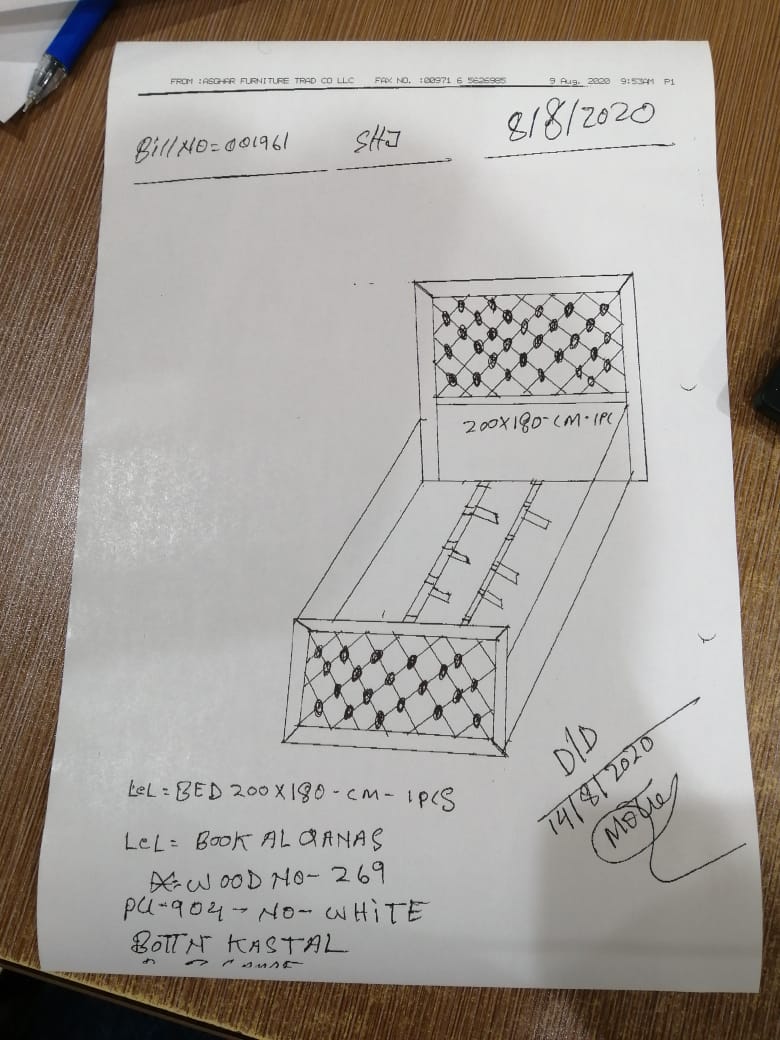 FROM :ASGHAR FURNITURE TRAD CO LLC FAX NO. :00971 6 5626985 9 Aug. 2020 9:53AM P1
Bill NO=001961 SHJ 8/8/2020
200X180-CM-1PC
D/D
14/8/2020
LCL=BED 200X180-CM-1PCS
LCL= BOOK AL QANAS
WOOD NO-269
PU-904-NO-WHITE
BOTTN KASTAL